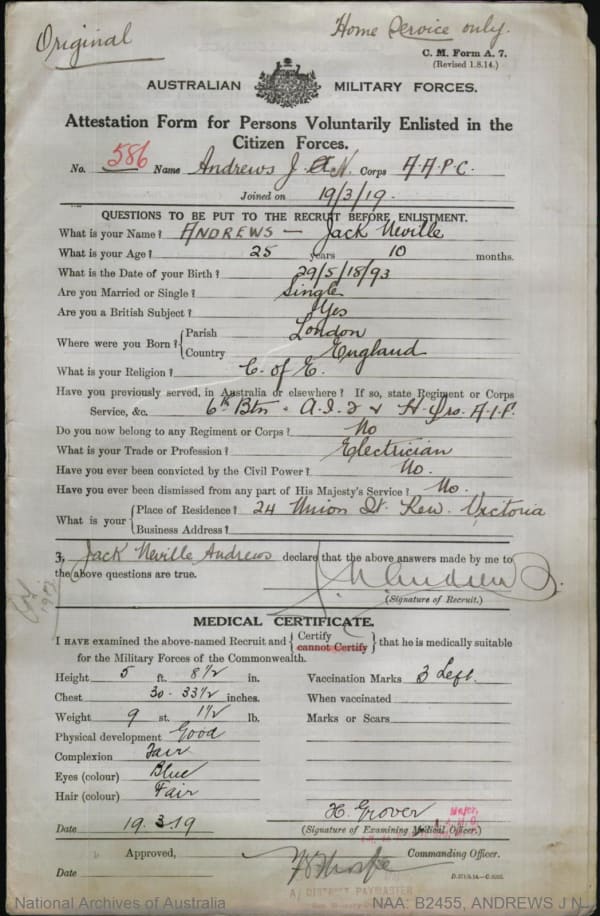 Original
Home Service only.
C. M. Form A. 7.
(Revised 1.8.14.)
AUSTRALIAN MILITARY FORCES.
Attestation Form for Persons Voluntarily Enlisted in the
Citizen Forces.
No. 586 Name Andrews J. N. Corps A.A.P.C.
Joined on 19/3/19.
QUESTIONS TO BE PUT TO THE RECRUIT BEFORE ENLISTMENT.
What is your Name? ANDREWS — Jack Neville
What is your Age? 25 years 10 months.
What is the Date of your Birth? 29/5/18/93
Are you Married or Single? Single
Are you a British Subject? Yes
Where were you Born? { Parish London
Country England
What is your Religion? C. of E.
Have you previously served, in Australia or elsewhere? If so, state Regiment or Corps
Service, &c. 6th Btn. A.I.F & H. Qrs. A.I.F.
Do you now belong to any Regiment or Corps? No
What is your Trade or Profession? Electrician
Have you ever been convicted by the Civil Power? No.
Have you ever been dismissed from any part of His Majesty's Service? No.
What is your { Place of Residence? 24 Union St. Kew. Victoria
Business Address?
I, Jack Neville Andrews declare that the above answers made by me to
the above questions are true.
J. N. Andrews
(Signature of Recruit.)
MEDICAL CERTIFICATE.
I HAVE examined the above-named Recruit and { Certify
cannot Certify } that he is medically suitable
for the Military Forces of the Commonwealth.
Height 5 ft. 8 1/2 in.
Chest 30 - 33 1/2 inches.
Weight 9 st. 1 1/2 lb.
Physical development Good
Complexion Fair
Eyes (colour) Blue
Hair (colour) Fair
Date 19.3.19
Vaccination Marks 3 Left.
When vaccinated
Marks or Scars
H. Grover Major,
(Signature of Examining Medical Officer.)
Approved,
Date
Commanding Officer.
A/ DISTRICT PAYMASTER
National Archives of Australia
NAA: B2455, ANDREWS J N